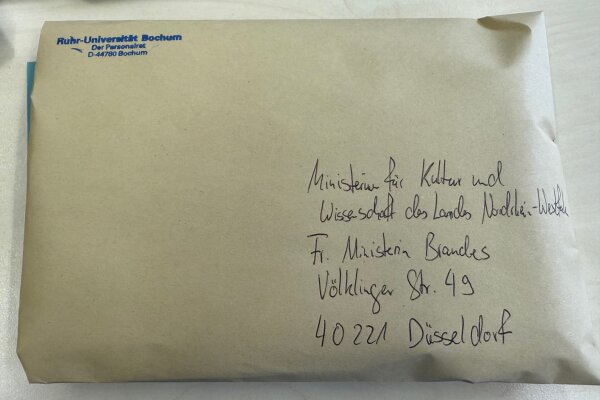 Ruhr-Universität Bochum
Der Personalrat
D-44780 Bochum
Ministerium für Kultur und
Wissenschaft des Landes Nordrhein-Westfalen
Fr. Ministerin Brandes
Völklinger Str. 49
40221 Düsseldorf